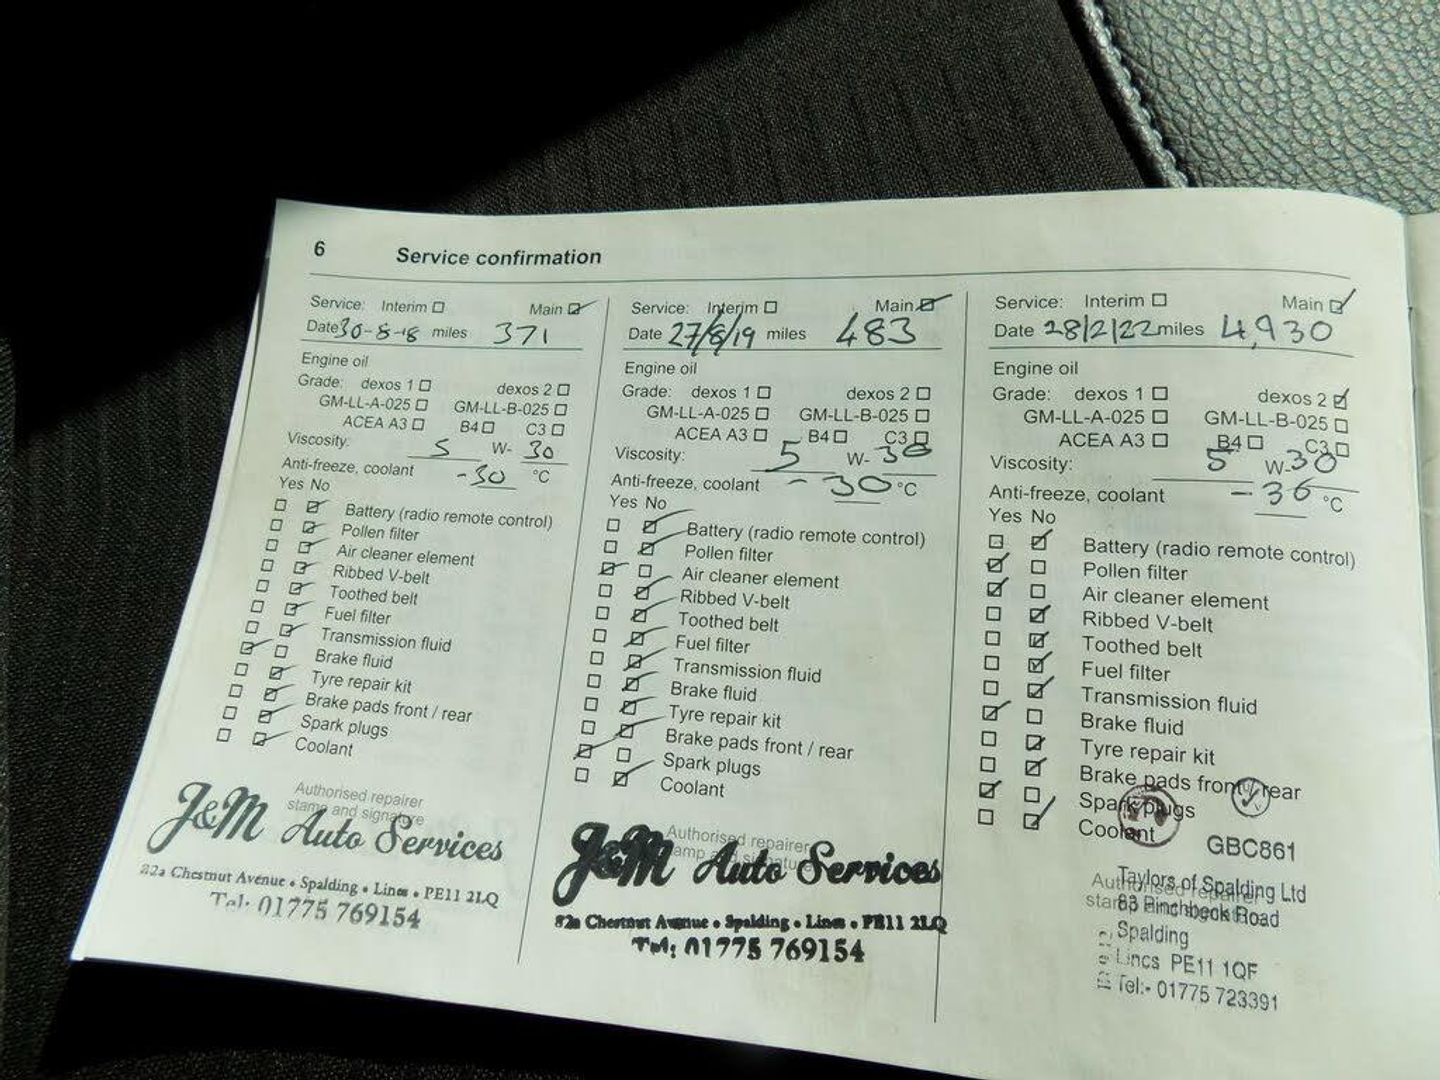 6 Service confirmation
Service: Interim ☐ Main ☑
Date 30-8-18 miles 371
Engine oil
Grade: dexos 1 ☐ dexos 2 ☐
GM-LL-A-025 ☐ GM-LL-B-025 ☐
ACEA A3 ☐ B4 ☐ C3 ☐
Viscosity: 5 W- 30
Anti-freeze, coolant -30 °C
Yes No
☐ ☑ Battery (radio remote control)
☐ ☑ Pollen filter
☐ ☑ Air cleaner element
☐ ☑ Ribbed V-belt
☐ ☑ Toothed belt
☐ ☑ Fuel filter
☐ ☑ Transmission fluid
☑ ☐ Brake fluid
☐ ☑ Tyre repair kit
☐ ☑ Brake pads front / rear
☐ ☑ Spark plugs
☐ ☑ Coolant
Authorised repairer
stamp and signature
J&M Auto Services
82a Chestnut Avenue • Spalding • Lincs • PE11 2LQ
Tel: 01775 769154
Service: Interim ☐ Main ☑
Date 27/8/19 miles 483
Engine oil
Grade: dexos 1 ☐ dexos 2 ☐
GM-LL-A-025 ☐ GM-LL-B-025 ☐
ACEA A3 ☐ B4 ☐ C3 ☐
Viscosity: 5 W- 30
Anti-freeze, coolant -30 °C
Yes No
☐ ☑ Battery (radio remote control)
☐ ☑ Pollen filter
☑ ☐ Air cleaner element
☐ ☑ Ribbed V-belt
☐ ☑ Toothed belt
☐ ☑ Fuel filter
☐ ☑ Transmission fluid
☐ ☑ Brake fluid
☐ ☑ Tyre repair kit
☐ ☑ Brake pads front / rear
☑ ☐ Spark plugs
☐ ☑ Coolant
Authorised repairer
stamp and signature
J&M Auto Services
82a Chestnut Avenue • Spalding • Lincs • PE11 2LQ
Tel: 01775 769154
Service: Interim ☐ Main ☑
Date 28/2/22 miles 4,930
Engine oil
Grade: dexos 1 ☐ dexos 2 ☑
GM-LL-A-025 ☐ GM-LL-B-025 ☐
ACEA A3 ☐ B4 ☐ C3 ☐
Viscosity: 5 W- 30
Anti-freeze, coolant -36 °C
Yes No
☐ ☑ Battery (radio remote control)
☑ ☐ Pollen filter
☑ ☐ Air cleaner element
☐ ☑ Ribbed V-belt
☐ ☑ Toothed belt
☐ ☑ Fuel filter
☐ ☑ Transmission fluid
☑ ☐ Brake fluid
☐ ☑ Tyre repair kit
☐ ☑ Brake pads front / rear
☑ ☐ Spark plugs
☐ ☑ Coolant
GBC861
Authorised repairer
stamp and signature
Taylors of Spalding Ltd
83 Pinchbeck Road
Spalding
Lincs PE11 1QF
Tel:- 01775 723391